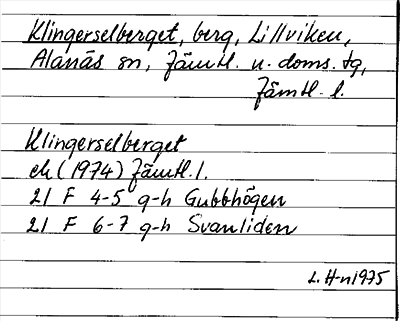 Klingerselberget, berg, Lillviken,
Alanäs sn, Jämtl. n. doms. tg,
Jämtl. l.
Klingerselberget
ek (1974) Jämtl. l.
21 F 4-5 g-h Gubbhögen
21 F 6-7 g-h Svanliden
L. H-n 1975